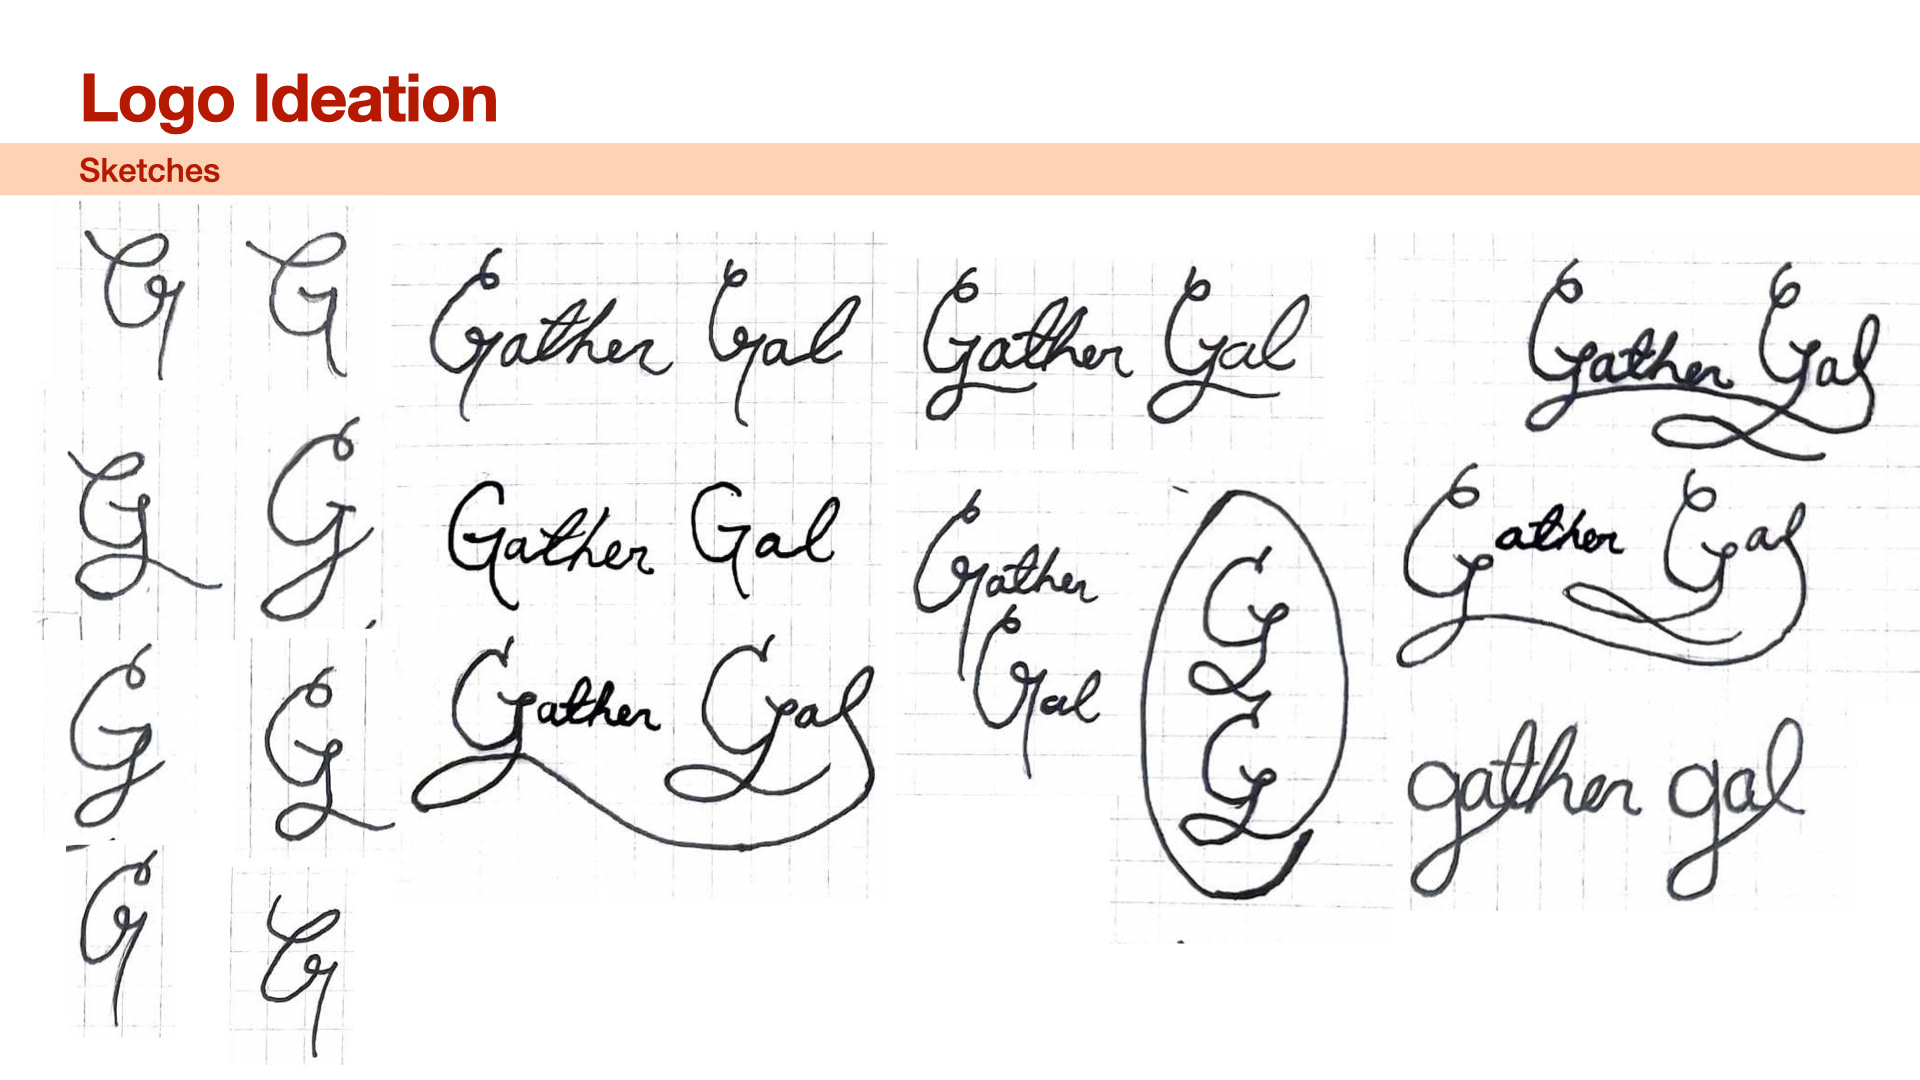 Logo Ideation
Sketches
G G
G G
G G
G G
Gather Gal
Gather Gal
Gather Gal
Gather Gal
Gather
Gal
G
G
Gather Gal
Gather Gal
gather gal